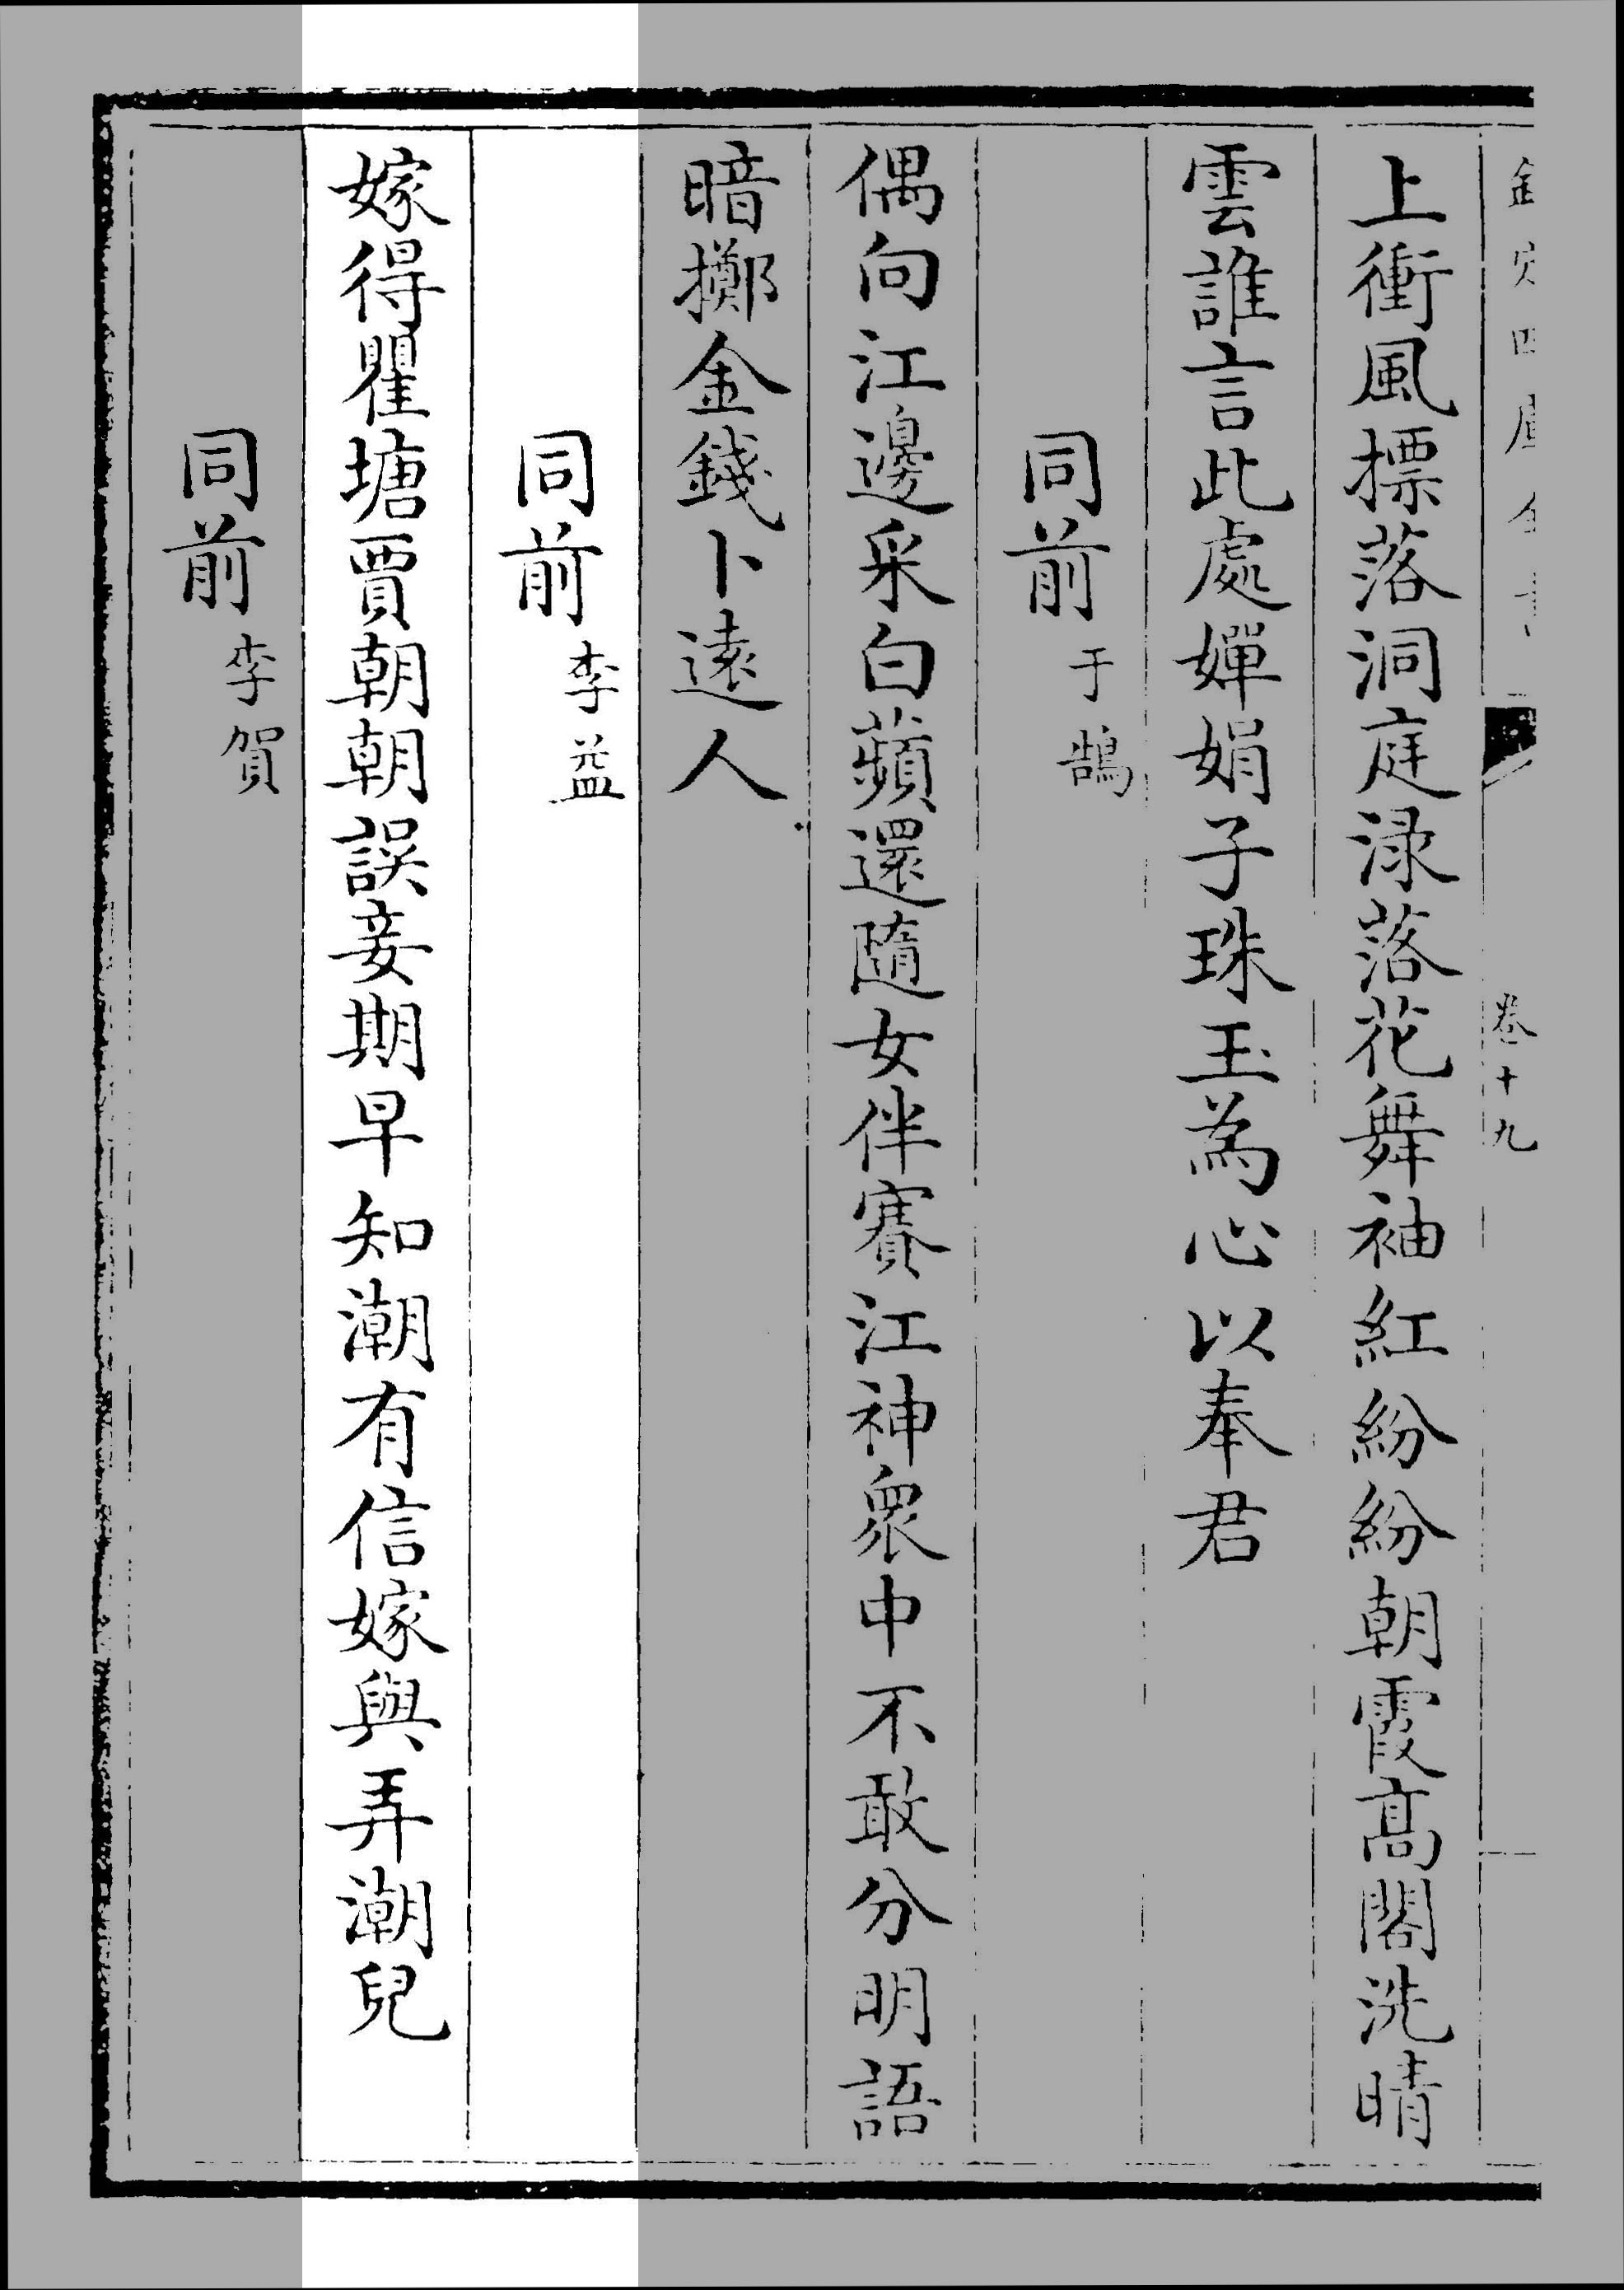 欽定四庫全書 卷十九
上衝風摽落洞庭渌落花舞袖紅紛紛朝霞髙閣洗晴
雲誰言此處嬋娟子珠玉為心以奉君
同前于鵠
偶向江邊采白蘋還隨女伴賽江神衆中不敢分明語
暗擲金錢卜逺人
同前李益
嫁得瞿塘賈朝朝誤妾期早知潮有信嫁與弄潮兒
同前李賀